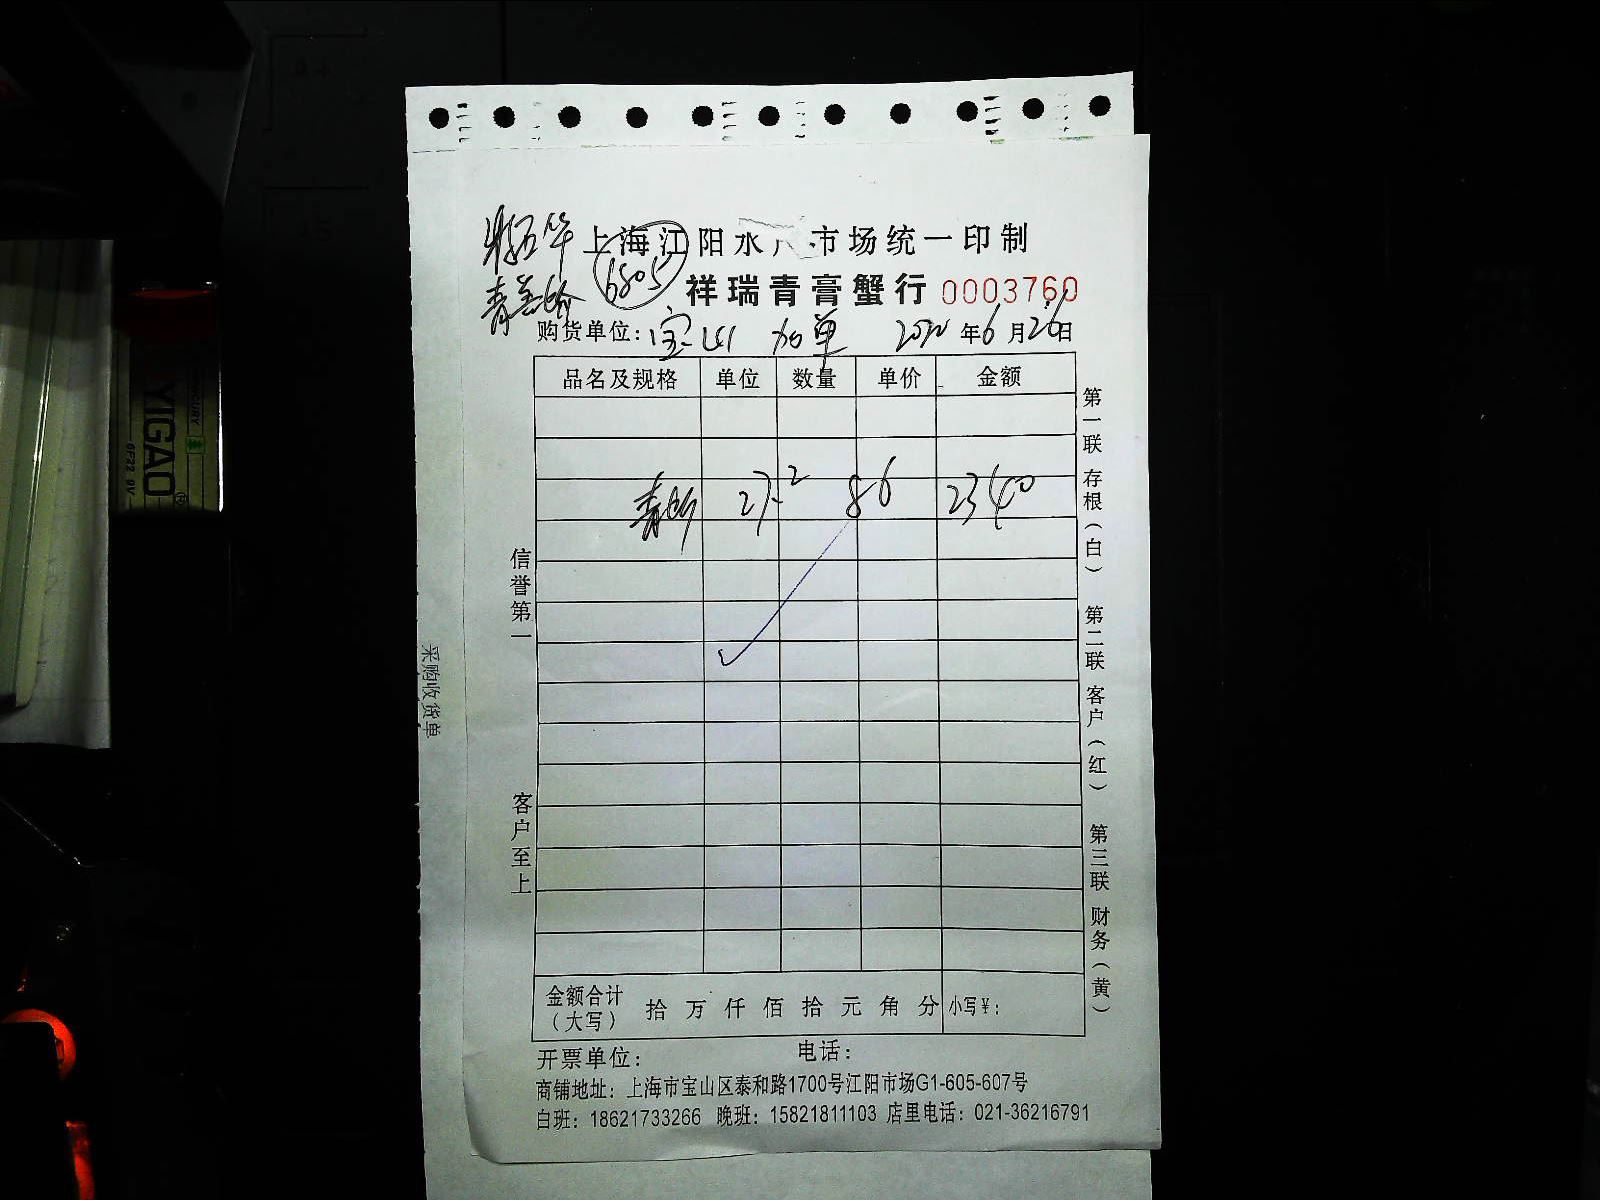 上海江阳水 市场统一印制
6805
祥瑞青膏蟹行 0003760
购货单位: 宝山 加单 2020年6月26日
品名及规格 单位 数量 单价 金额
27.2 86 2340
金额合计(大写) 拾 万 仟 佰 拾 元 角 分 小写¥:
开票单位: 电话:
商铺地址: 上海市宝山区泰和路1700号江阳市场G1-605-607号
白班: 18621733266 晚班: 15821811103 店里电话: 021-36216791
信誉第一
客户至上
第一联 存根(白) 第二联 客户(红) 第三联 财务(黄)
采购收货单
YIGAO
6F22 9V